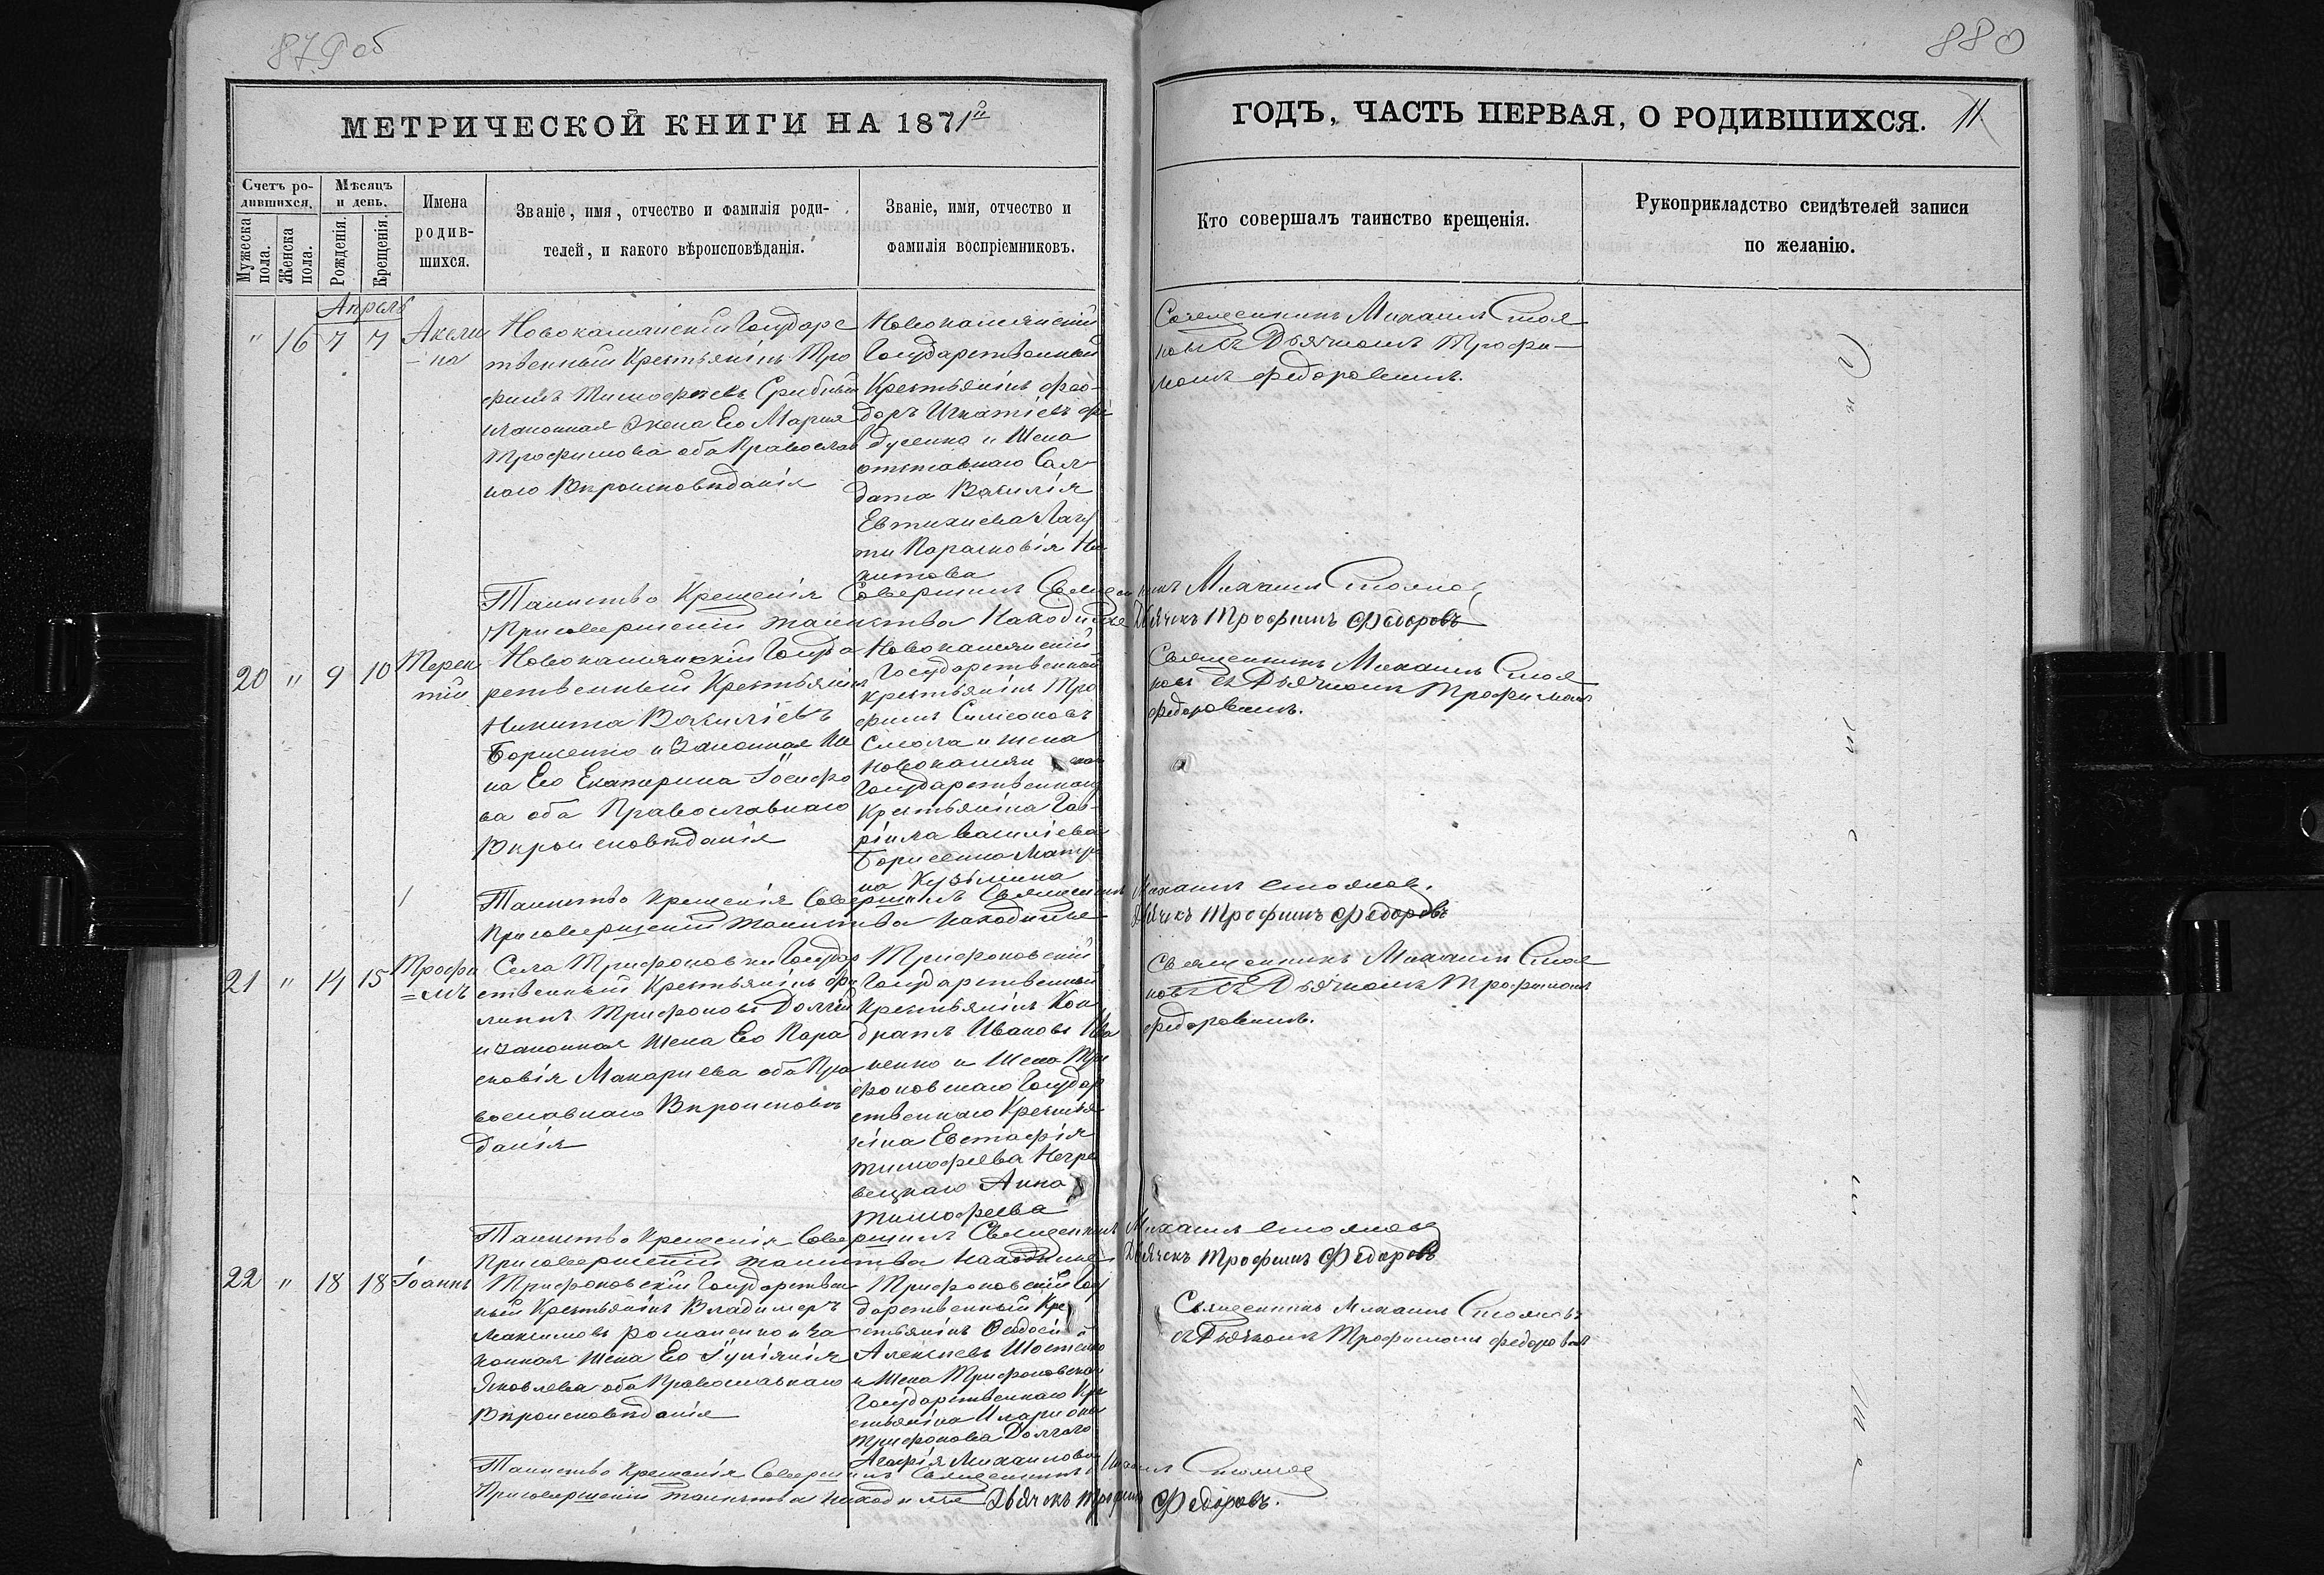 879 об
880
МЕТРИЧЕСКОЙ КНИГИ НА 1871й
ГОДЪ, ЧАСТЬ ПЕРВАЯ, О РОДИВШИХСЯ. 11
Счетъ родившихся.
Мужеска пола.
Женска пола.
Мѣсяцъ и день.
Рожденія.
Крещенія.
Имена родившихся.
Званіе, имя, отчество и фамилія родителей, и какого вѣроисповѣданія.
Званіе, имя, отчество и фамилія воспріемниковъ.
Кто совершалъ таинство крещенія.
Рукоприкладство свидѣтелей записи по желанію.
Апрель
" 16 7 7 Акели
на
Государс
твенный Крестьянинъ Тро
фимъ Тимофѣевъ
и законная жена Его Мария
Трофимова оба Православ
наго Вѣроисповѣданія
Государственный
Крестьянінъ Фео
доръ Игнатіевъ
и Жена
отставнаго Сал
дата Василія
Евтихиева
Парасковія Ни
китова
Священникъ Михаилъ Стоя
новъ съ Дьячкомъ Трофи
момъ Федоровымъ.
Таинство Крещенія Совершилъ Священникъ Михаилъ Стоянов
При совершеніи таинства находился Дьячекъ Трофимъ Федоровъ
20 " 9 10 Терен
тий
Госуда
рственный Крестьянінъ
Никита Василіевъ
Борисенко и Законная Же
на Его Екатерина Іосифо
ва оба Православнаго
Вѣроисповѣданія
Государственный
Крестьянінъ Тро
фимъ Симеоновъ
Смола и жена
Государственнаго
Крестьянина Гав
ріила Василіева
Борисенка Матро
на Кузьмина
Священникъ Михаилъ Стоя
новъ съ Дьячкомъ Трофимомъ
Федоровымъ.
Таинство Крещенія Совершилъ Священникъ Михаилъ Стоянов.
При совершеніи таинства находился Дьячекъ Трофимъ Федоровъ
21 " 14 15 Трофи
мъ
Села Трифоновки Государ
ственный Крестьянінъ Фи
липпъ Трифоновъ Долгий
и законная жена Его Пара
сковія Макариева оба Пра
вославнаго Вѣроисповѣ
данія
Трифоновскій
Государственный
Крестьянінъ Кон
дратъ Ивановъ
и Жена Три
фоновскаго Государ
ственнаго Крестья
ніна Евстафія
Тимофеева
Анна
Тимофеева
Священникъ Михаилъ Стоя
новъ съ Дьячкомъ Трофимомъ
Федоровымъ.
Таинство Крещенія Совершилъ Священникъ Михаилъ Стоянов
При совершеніи таинства находился Дьячекъ Трофимъ Федоровъ
22 " 18 18 Іоаннъ
Трифоновскій Государствен
ный Крестьянінъ Владимеръ
Максимовъ Романенко и за
конная жена Его Іуліянія
Яковлева оба Православнаго
Вѣроисповѣданія
Трифоновскій Госу
дарственный Кре
стьянінъ Феодосій
Алексіевъ Шостенко
и Жена Трифоновскаго
Государственнаго Кре
стьяніна Илариона
Трифонова Долгаго
Агафія Михаилова
Священникъ Михаилъ Стояновъ
съ Дьячкомъ Трофимомъ Федоровымъ
Таинство Крещенія Совершилъ Священникъ Михаилъ Стоянов
При совершеніи таинства находился Дьячекъ Трофимъ Федоровъ.